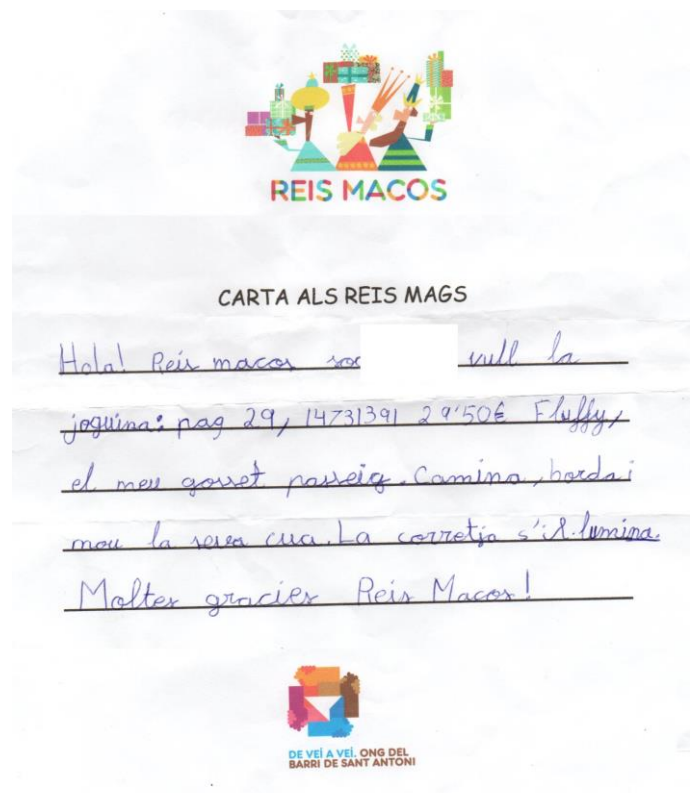 REIS MACOS
CARTA ALS REIS MAGS
Hola! Reis macos soc vull la
joguina: pag 29, 14731391 29'50€ Fluffy,
el meu gosset passeig. Camina, borda i
mou la seva cua. La corretja s'il·lumina.
Moltes gracies Reis Macos!
DE VEÍ A VEÍ. ONG DEL
BARRI DE SANT ANTONI